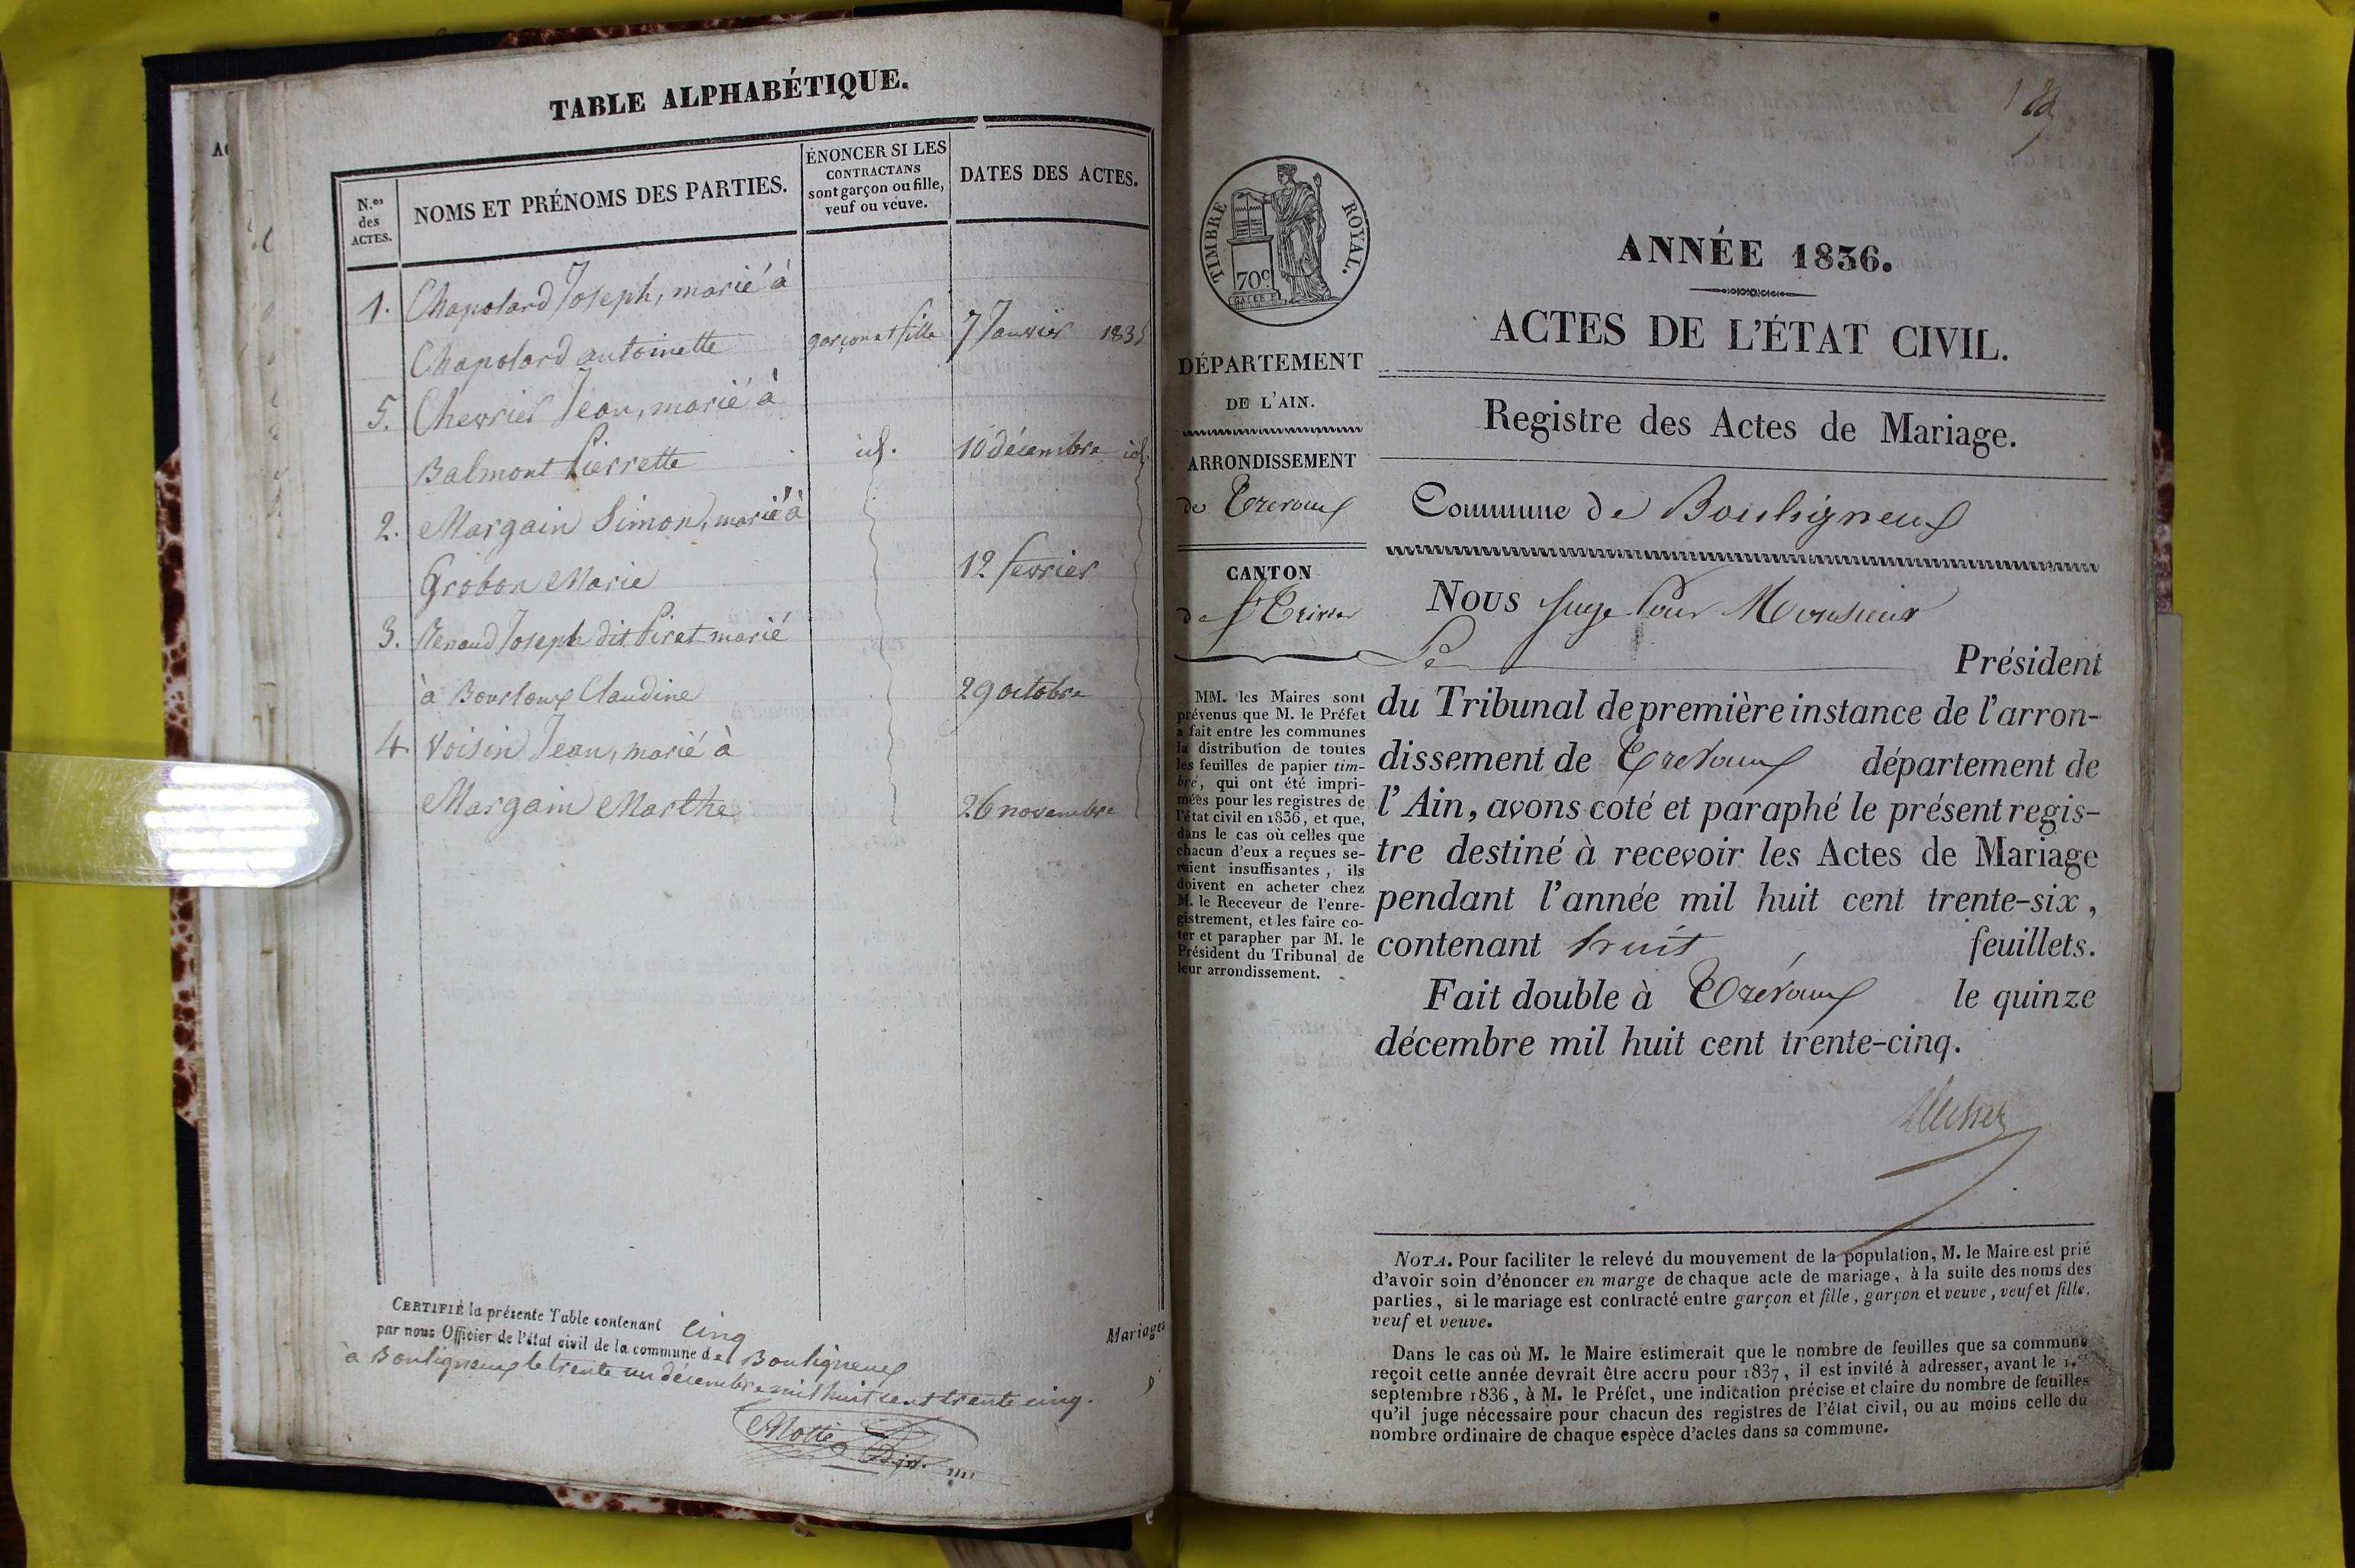 TABLE ALPHABÉTIQUE.
N.os des ACTES.
NOMS ET PRÉNOMS DES PARTIES.
ÉNONCER SI LES
CONTRACTANS
sont garçon ou fille,
veuf ou veuve.
DATES DES ACTES.
1. Chapolard Joseph, marié à
Chapolard antoinette garçon et fille 7 Janvier 1835
5. Chevrier Jean, marié à
Balmont Pierrette id. 10 décembre id.
2. Margain Simon, marié à
Grobon Marie 12 fevrier
3. Renaud Joseph dit Pirat marié
à Bourloux Claudine 29 octobre
4. Voisin Jean, marié à
Margain Marthe 26 novembre
CERTIFIÉ la présente Table contenant cinq Mariages
par nous Officier de l'état civil de la commune de Bouligneux
à Bouligneux le trente un décembre mil huit cent trente cinq.
TIMBRE ROYAL.
70c
DÉPARTEMENT
DE L'AIN.
ARRONDISSEMENT
de Trevoux
CANTON
de St Trivier
MM. les Maires sont
prévenus que M. le Préfet
a fait entre les communes
la distribution de toutes
les feuilles de papier tim-
bré, qui ont été impri-
mées pour les registres de
l'état civil en 1836, et que,
dans le cas où celles que
chacun d'eux a reçues se-
raient insuffisantes, ils
doivent en acheter chez
M. le Receveur de l'enre-
gistrement, et les faire co-
ter et parapher par M. le
Président du Tribunal de
leur arrondissement.
ANNÉE 1836.
ACTES DE L'ÉTAT CIVIL.
Registre des Actes de Mariage.
Commune de Bouligneux
Nous Juge Pour Monsieur
Le Président
du Tribunal de première instance de l'arron-
dissement de Trevoux département de
l'Ain, avons coté et paraphé le présent regis-
tre destiné à recevoir les Actes de Mariage
pendant l'année mil huit cent trente-six,
contenant huit feuillets.
Fait double à Trévoux le quinze
décembre mil huit cent trente-cinq.
NOTA. Pour faciliter le relevé du mouvement de la population, M. le Maire est prié
d'avoir soin d'énoncer en marge de chaque acte de mariage, à la suite des noms des
parties, si le mariage est contracté entre garçon et fille, garçon et veuve, veuf et fille,
veuf et veuve.
Dans le cas où M. le Maire estimerait que le nombre de feuilles que sa commune
reçoit cette année devrait être accru pour 1837, il est invité à adresser, avant le 1.er
septembre 1836, à M. le Préfet, une indication précise et claire du nombre de feuilles
qu'il juge nécessaire pour chacun des registres de l'état civil, ou au moins celle du
nombre ordinaire de chaque espèce d'actes dans sa commune.